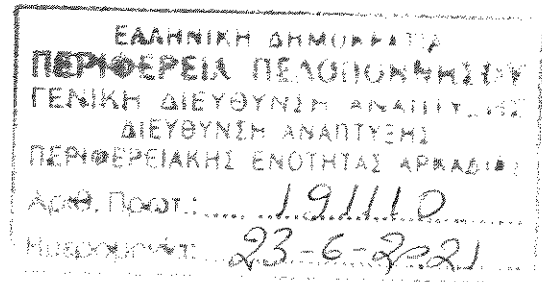 ΕΛΛΗΝΙΚΗ ΔΗΜΟΚΡΑΤΙΑ
ΠΕΡΙΦΕΡΕΙΑ ΠΕΛΟΠΟΝΝΗΣΟΥ
ΓΕΝΙΚΗ ΔΙΕΥΘΥΝΣΗ ΑΝΑΠΤΥΞΗΣ
ΔΙΕΥΘΥΝΣΗ ΑΝΑΠΤΥΞΗΣ
ΠΕΡΙΦΕΡΕΙΑΚΗΣ ΕΝΟΤΗΤΑΣ ΑΡΚΑΔΙΑΣ
Αριθ. Πρωτ.: 191110
Ημερομηνία: 23-6-2021